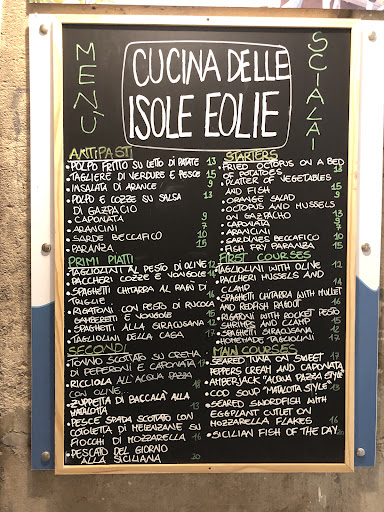 MENÙ
CUCINA DELLE
ISOLE EOLIE
SCIALAI
ANTIPASTI
• POLPO FRITTO SU LETTO DI PATATE 13
• TAGLIERE DI VERDURE E PESCE 15
• INSALATA DI ARANCE 9
• POLPO E COZZE SU SALSA 13
DI GAZPACIO
• CAPONATA 9
• ARANCINI 7
• SARDE BECCAFICO 10
• PARANZA 15
PRIMI PIATTI
• TAGLIOLINI AL PESTO DI OLIVE 12
• PACCHERI COZZE E VONGOLE 14
• SPAGHETTI CHITARRA AL RAGÙ DI
TRIGLIE
• RIGATONI CON PESTO DI RUCOLA
GAMBERETTI E VONGOLE 15
• SPAGHETTI ALLA SIRACUSANA 12
• TAGLIOLINI DELLA CASA 17
SECONDI
• TONNO SCOTTATO SU CREMA
DI PEPERONI E CAPONATA 17
• RICCIOLA ALL'ACQUA PAZZA
CON OLIVE
• ZUPPETTA DI BACCALÀ ALLA
MATALOTTA
• PESCE SPADA SCOTTATO CON
COTOLETTA DI MELENZANE SU
FIOCCHI DI MOZZARELLA 16
• PESCATO DEL GIORNO
ALLA SICILIANA 20
STARTERS
• FRIED OCTOPUS ON A BED
OF POTATOES 13
• PLATTER OF VEGETABLES
AND FISH 15
• ORANGE SALAD 9
• OCTOPUS AND MUSSELS
ON GAZPACHO 13
• CAPONATA 9
• ARANCINI 7
• SARDINES BECCAFICO 10
• FISH FRY PARANZA 15
FIRST COURSES
• TAGLIOLINI WITH OLIVE 12
• PACCHERI MUSSELS AND
CLAMP 14
• SPAGHETTI CHITARRA WITH MULLET
AND REDFISH RAGOUT
• RIGATONI WITH ROCKET PESTO
SHRIMPS AND CLAMP 15
• SPAGHETTI SIRACUSANA 12
• HOMEMADE TAGLIOLINI 17
MAIN COURSES
• SEARED TUNA ON SWEET
PEPPERS CREAM AND CAPONATA
• AMBERJACK "ACQUA PAZZA STYLE"
• COD SOUP "MATALOTTA STYLE"
• SEARED SWORDFISH WITH
EGGPLANT CUTLET ON
MOZZARELLA FLAKES 16
• SICILIAN FISH OF THE DAY 20